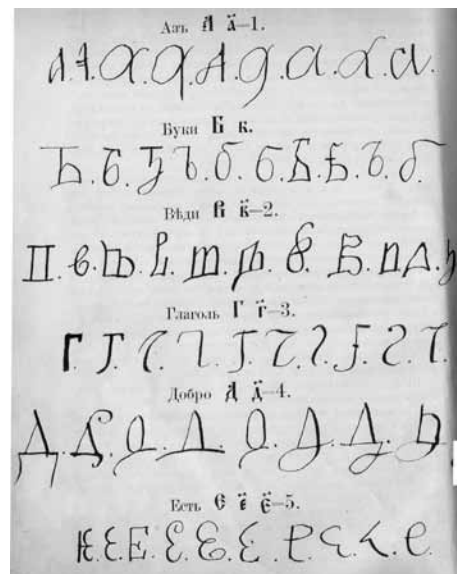 Азъ Ѧ а҃—1.
А. А. А. А. А. А. А. А. А.
Буки Б к.
Б. Б. Б. Б. Б. Б. Б. Б. Б. Б
Вѣди В в҃—2.
В. В. В. В. В. В. В. В. В. В. В
Глаголь Г г҃—3.
Г. Г. Г. Г. Г. Г. Г. Г. Г. Г.
Добро Д д҃—4.
Д. Д. Д. Д. Д. Д. Д. Д
Есть Є є҃ є҃—5.
Е. Е. Е. Е. Е. Е. Е. Е. Е. Е.